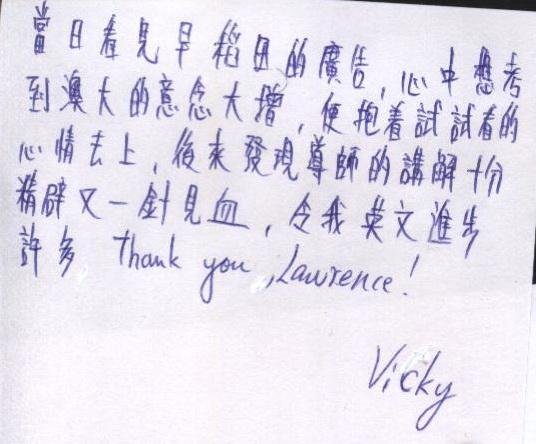 當日看見早稻田的廣告,心中想考
到澳大的意念大增,便抱着試試看的
心情去上,後來發現導師的講解十分
精辟又一針見血,令我英文進步
許多 Thank you, Lawrence!
Vicky